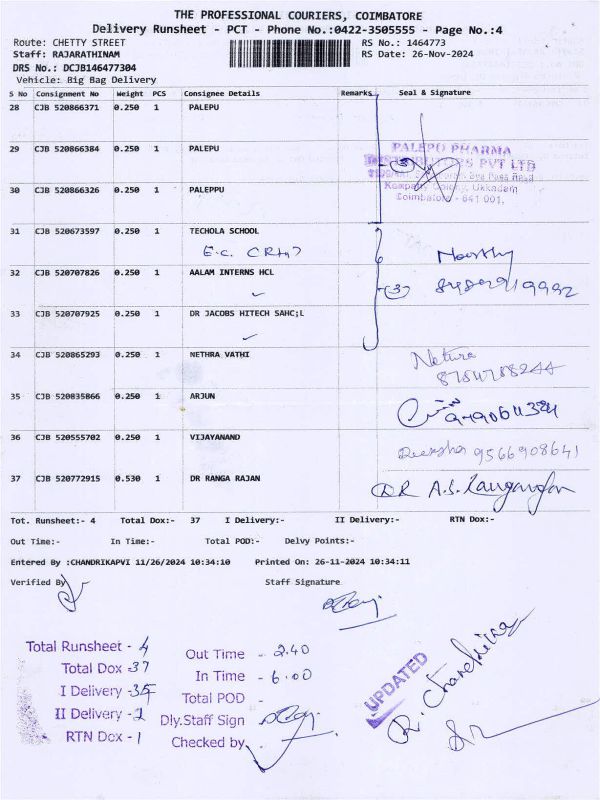 THE PROFESSIONAL COURIERS, COIMBATORE
Delivery Runsheet - PCT - Phone No.:0422-3505555 - Page No.:4
Route: CHETTY STREET RS No.: 1464773
Staff: RAJARATHINAM RS Date: 26-Nov-2024
DRS No.: DCJB146477304
Vehicle: Big Bag Delivery
S No Consignment No Weight PCS Consignee Details Remarks Seal & Signature
28 CJB 520866371 0.250 1 PALEPU
29 CJB 520866384 0.250 1 PALEPU
PALEPU PHARMA
DISTRIBUTORS PVT LTD
30 CJB 520866326 0.250 1 PALEPPU
Ukkadam
Coimbatore - 641 001.
31 CJB 520673597 0.250 1 TECHOLA SCHOOL
32 CJB 520707826 0.250 1 AALAM INTERNS HCL
3
33 CJB 520707925 0.250 1 DR JACOBS HITECH SAHC;L
34 CJB 520865293 0.250 1 NETHRA VATHI
35 CJB 520835866 0.250 1 ARJUN
36 CJB 520555702 0.250 1 VIJAYANAND
9566908641
37 CJB 520772915 0.530 1 DR RANGA RAJAN
DR A.S.
Tot. Runsheet:- 4 Total Dox:- 37 I Delivery:- II Delivery:- RTN Dox:-
Out Time:- In Time:- Total POD:- Delvy Points:-
Entered By :CHANDRIKAPVI 11/26/2024 10:34:10 Printed On: 26-11-2024 10:34:11
Verified By Staff Signature
Total Runsheet - 4
Total Dox - 37
I Delivery -
II Delivery -
RTN Dox - 1
Out Time - 2.40
In Time - 6.00
Total POD -
Dly.Staff Sign
Checked by
UPDATED